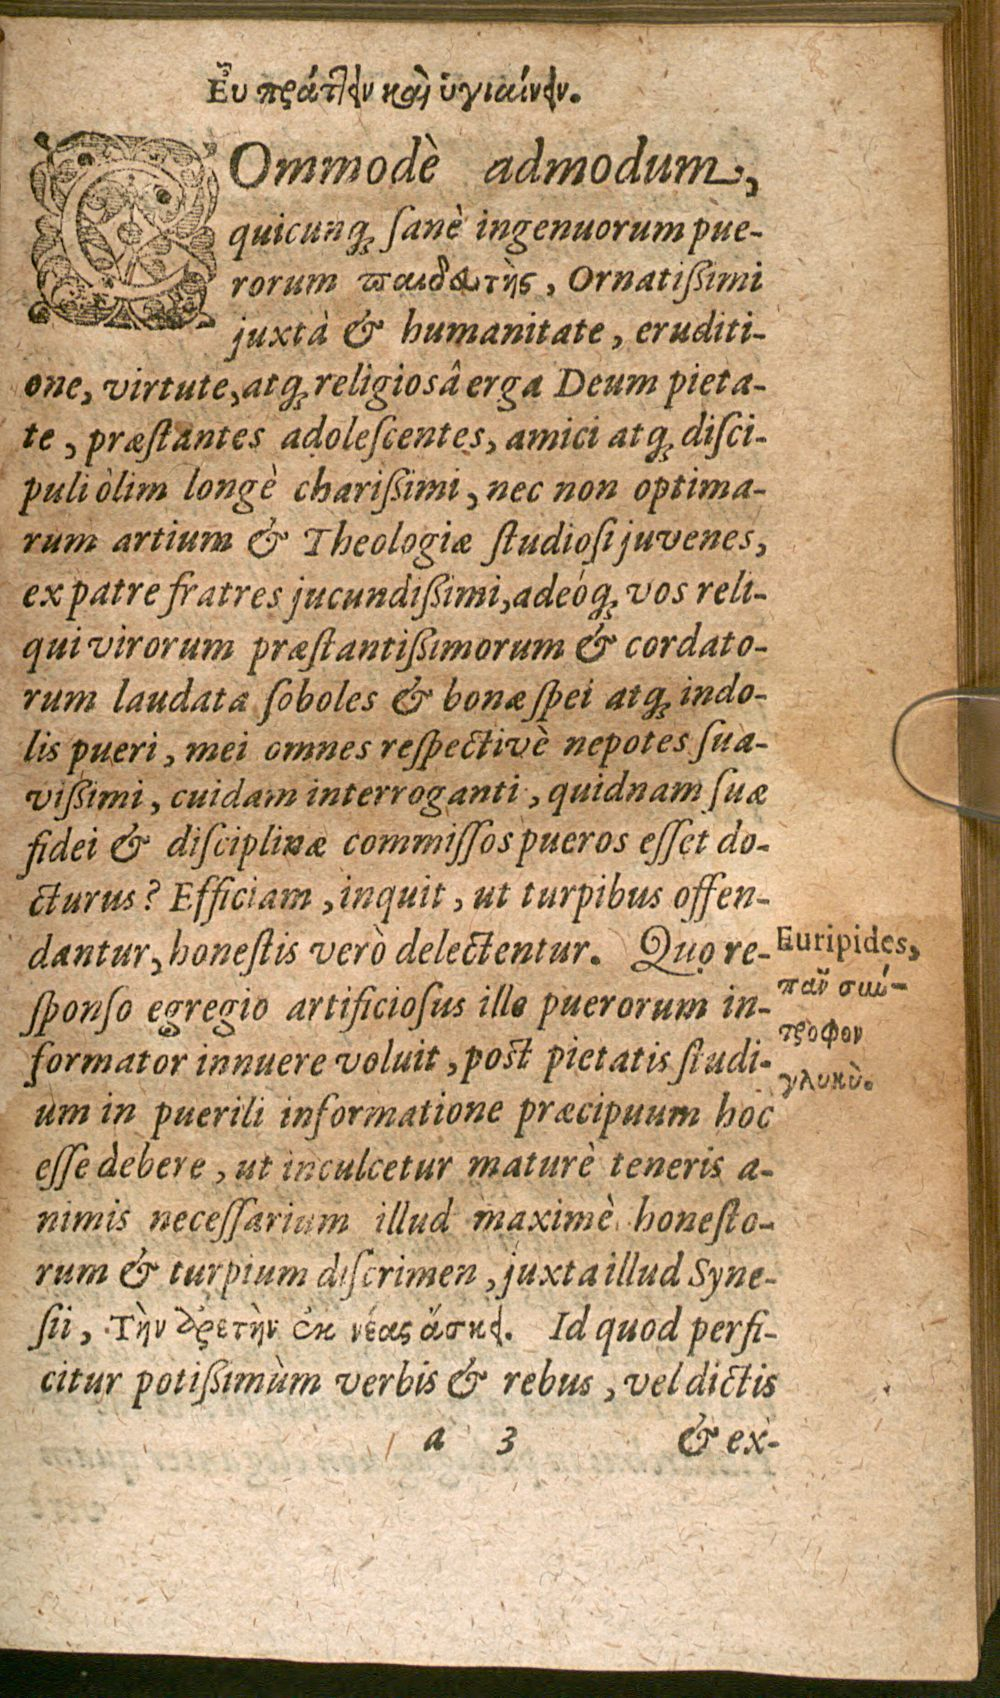 Εὖ πράττειν καὶ ὑγιαίνειν.
COmmodè admodum,
quicunq; ſanè ingenuorum pue-
rorum παιδευτὴς, Ornatiſſimi
juxtà & humanitate, eruditi-
one, virtute, atq; religiosâ erga Deum pieta-
te, præſtantes adoleſcentes, amici atq; diſci-
puli òlim longè chariſſimi, nec non optima-
rum artium & Theologiæ ſtudioſi juvenes,
ex patre fratres jucundiſſimi, adeóq; vos reli-
qui virorum præſtantiſſimorum & cordato-
rum laudata ſoboles & bonæ ſpei atq; indo-
lis pueri, mei omnes reſpectivè nepotes ſua-
viſſimi, cuidam interroganti, quidnam ſuæ
fidei & diſciplinæ commiſſos pueros eſſet do-
cturus? Efficiam, inquit, ut turpibus offen-
dantur, honeſtis verò delectentur. Quo re-
ſponſo egregio artificioſus ille puerorum in-
formator innuere voluit, poſt pietatis ſtudi-
um in puerili informatione præcipuum hoc
eſſe debere, ut inculcetur maturè teneris a-
nimis neceſſarium illud maximè honeſto-
rum & turpium diſcrimen, juxta illud Syne-
ſii, Τὴν ἀρετὴν ἐκ νέας ἄσκει. Id quod perfi-
citur potiſſimùm verbis & rebus, vel dictis
a 3 & ex-
Euripides,
πᾶν σύν-
τροφον
γλυκὺ.